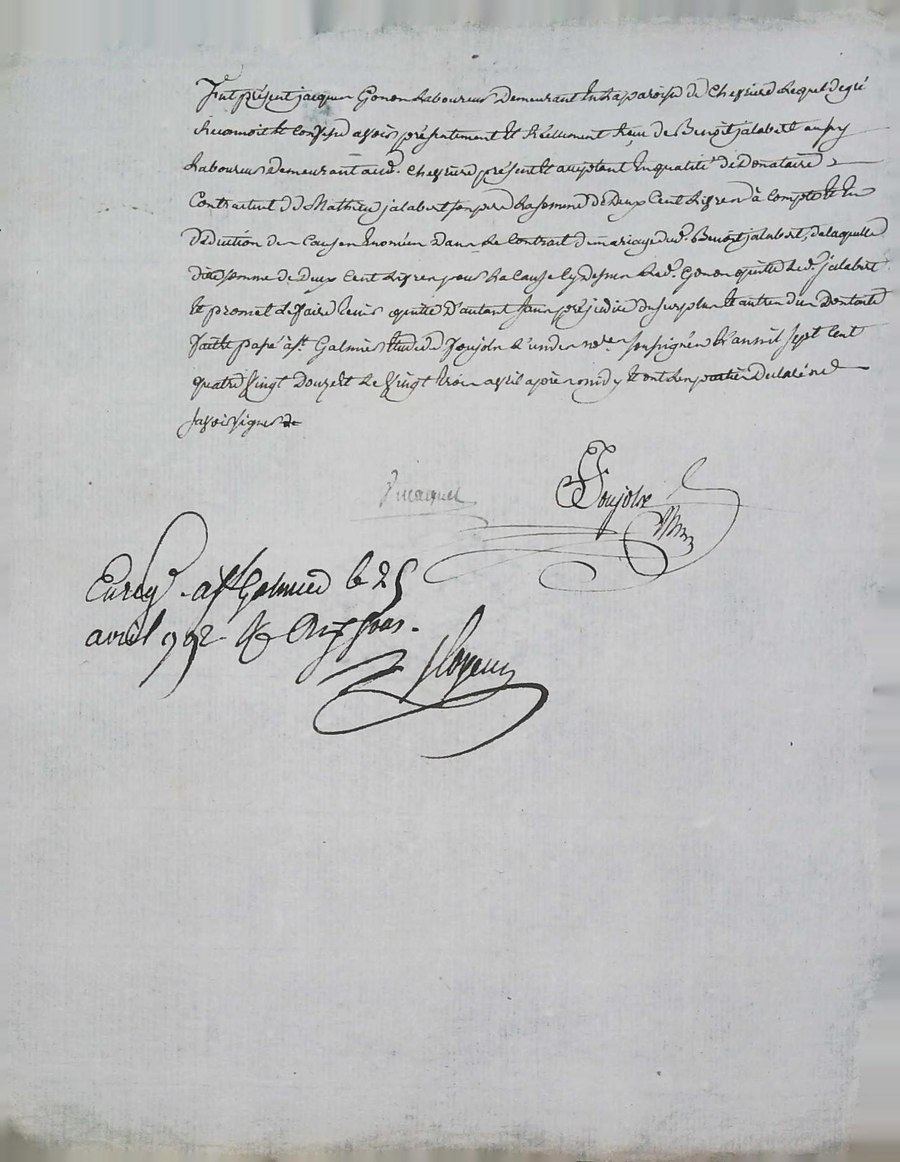 Fut présent jacques Gonon Laboureur Demeurant En La paroisse de Chevrieres Lequel de gré
Reconnoit Et Confesse avoir présentement Et Réellement Reçu de Benoit jalabert aussy
Laboureur Demeurant aud. Chevrieres présent Et acceptant En qualité de Donataire
Contractuel de Mathieu jalabert son pere La somme de Deux Cent Livres à Compte Et En
Déduction des Causes Enoncées Dans Le Contrat de mariage dud. Benoit jalabert, de laquelle
ditte somme de Deux Cent Livres pour La cause cy dessus Led. Gonon quitte Led. jalabert
Et promet Le faire tenir quitte D'autant sans préjudice du surplus Et autres du Dont acte
fait Et passé à St. Galmier Etude de Poujols L'un des nores. soussignés L'an mil sept Cent
quatre Vingt Douze Et Le Vingt trois avril après midy Et ont Les parties Declaré ne
savoir signer de
Poujols
Nre
Enregé. a St Galmier le 25
avril 792 Rs Dix sous.